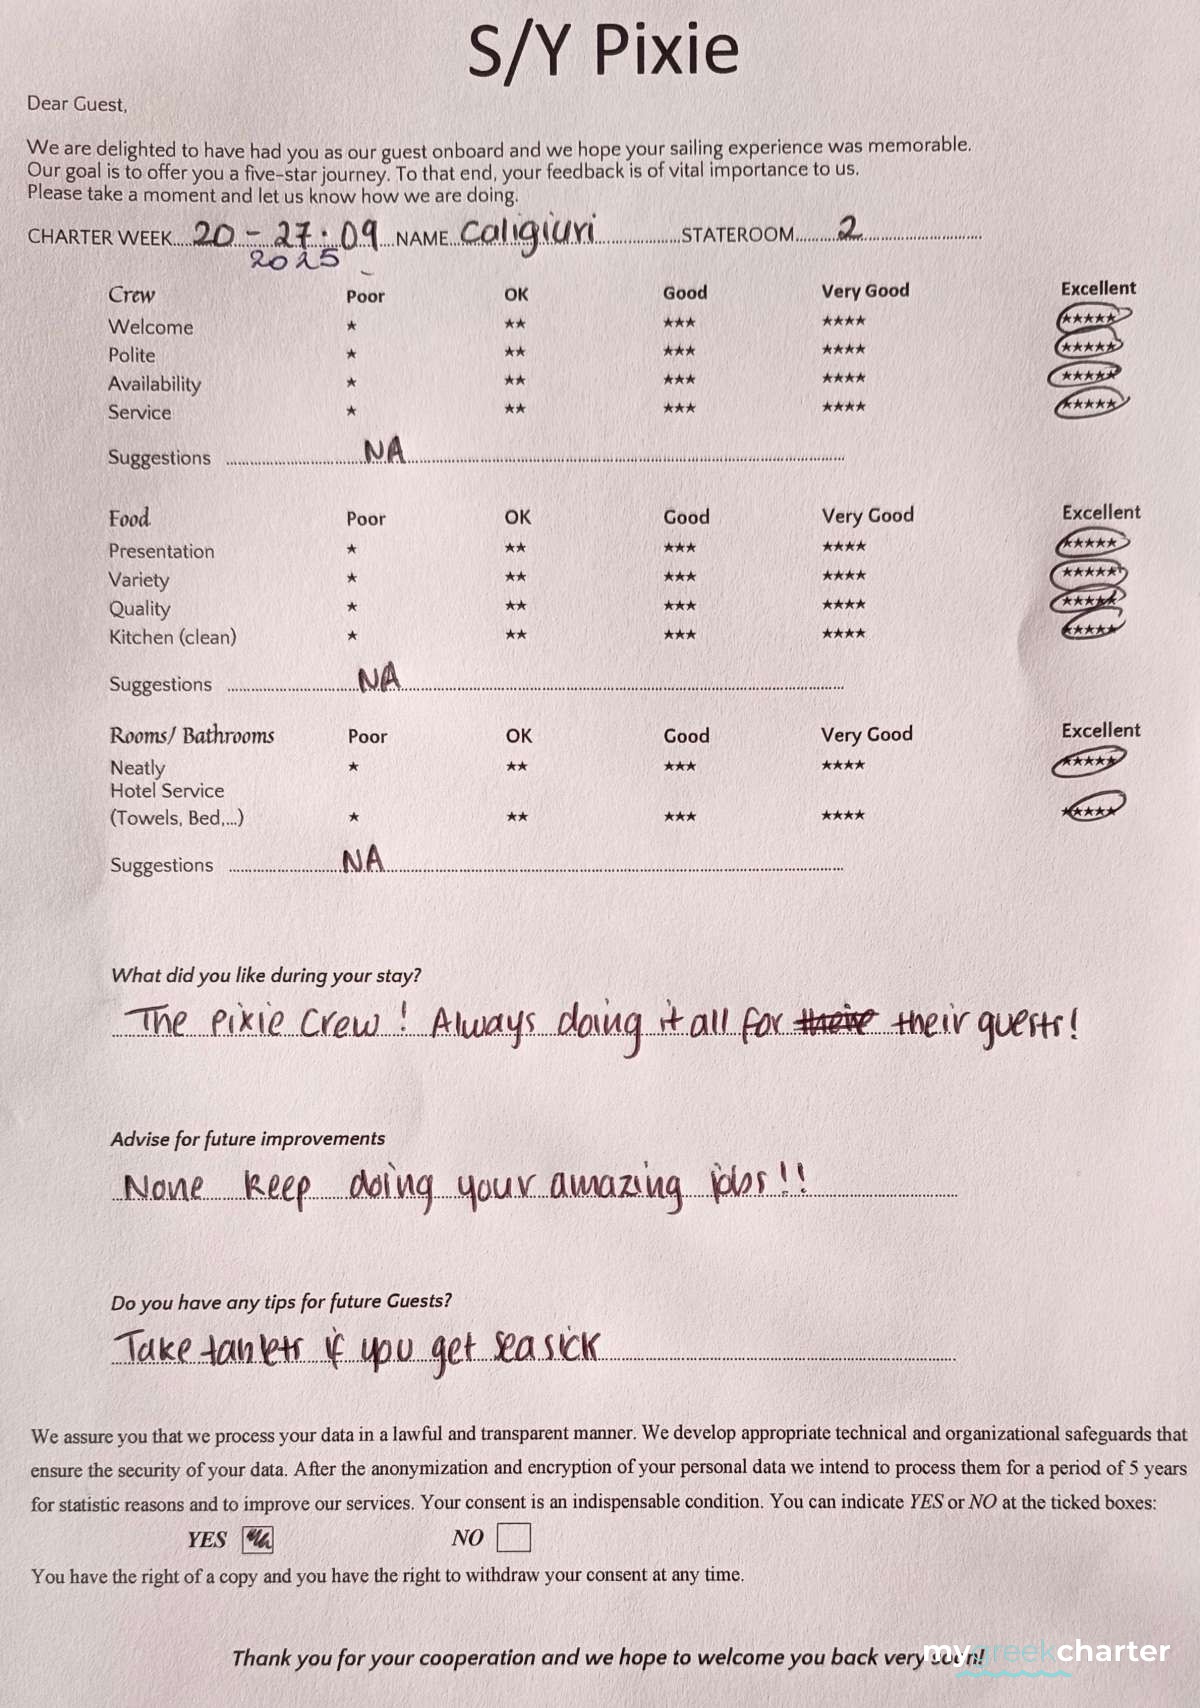 S/Y Pixie
Dear Guest,
We are delighted to have had you as our guest onboard and we hope your sailing experience was memorable.
Our goal is to offer you a five-star journey. To that end, your feedback is of vital importance to us.
Please take a moment and let us know how we are doing.
CHARTER WEEK.....20 - 27.09....NAME...Caligiuri..................STATEROOM..........2..............................
2025
Crew Poor OK Good Very Good Excellent
Welcome ★ ★★ ★★★ ★★★★ ★★★★★
Polite ★ ★★ ★★★ ★★★★ ★★★★★
Availability ★ ★★ ★★★ ★★★★ ★★★★★
Service ★ ★★ ★★★ ★★★★ ★★★★★
Suggestions ..............................NA..............................
Food Poor OK Good Very Good Excellent
Presentation ★ ★★ ★★★ ★★★★ ★★★★★
Variety ★ ★★ ★★★ ★★★★ ★★★★★
Quality ★ ★★ ★★★ ★★★★ ★★★★★
Kitchen (clean) ★ ★★ ★★★ ★★★★ ★★★★★
Suggestions ..............................NA..............................
Rooms/ Bathrooms Poor OK Good Very Good Excellent
Neatly ★ ★★ ★★★ ★★★★ ★★★★★
Hotel Service
(Towels, Bed,...) ★ ★★ ★★★ ★★★★ ★★★★★
Suggestions ..............................NA..............................
What did you like during your stay?
The Pixie Crew! Always doing it all for their guests!
Advise for future improvements
None keep doing your amazing jobs!!
Do you have any tips for future Guests?
Take tablets if you get sea sick
We assure you that we process your data in a lawful and transparent manner. We develop appropriate technical and organizational safeguards that
ensure the security of your data. After the anonymization and encryption of your personal data we intend to process them for a period of 5 years
for statistic reasons and to improve our services. Your consent is an indispensable condition. You can indicate YES or NO at the ticked boxes:
YES NO
You have the right of a copy and you have the right to withdraw your consent at any time.
Thank you for your cooperation and we hope to welcome you back very soon!
mygreekcharter